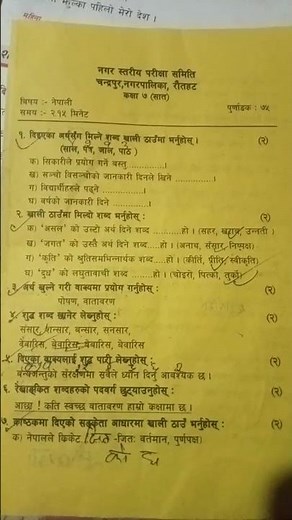 मुल्का पहिलो मेरो देश ।
नगर स्तरीय परीक्षा समिति
चन्द्रपुर,नगरपालिका, रौतहट
कक्षा ७ (सात)
विषय :- नेपाली
पुर्णाङक : ७५
समय :- २.१५ मिनेट
१. दिइएका अर्थसँग मिल्ने शब्द खाली ठाउँमा भर्नुहोस् । (२)
(साल, पत्र, जाल, पाठ )
क) सिकारीले प्रयोग गर्ने वस्तु ..............।
ख) सन्चो विसन्चोको जानकारी दिनले खिने ..............।
ग) विद्यार्थीहरुले पढ्ने ..............।
घ) वर्षको जानकारी दिने ..............।
२. खाली ठाउँमा मिल्दो शब्द भर्नुहोस् : (२)
क) 'असल' को उल्टो अर्थ दिने शब्द .....हो । (सहर, खराब, उन्नती ।
ख) 'जगत' को उस्तै अर्थ दिने शब्द ....हो । (अनाथ, संसार, निष्पक्ष)
ग) 'कृति' को श्रुतिसमभिन्नार्थक शब्द....हो । (कीर्ति, प्रीति, स्वीकृति)
घ) 'दुध' को लघुतावाची शब्द ....हो । (चोइरो, पित्को, तुर्को)
३. अर्थ खुल्ने गरी वाक्यमा प्रयोग गर्नुहोस् : (२)
पोषण, वातावरण
४. शुद्ध शब्द छानेर लेख्नुहोस् : (२)
संसार, सन्सार, बन्सार, सनसार,
बेवारिस, बेवारिस
५. दिएका वाक्यलाई शुद्ध पारी लेख्नुहोस् : (२)
संरक्षणमा सवैले ध्यान दिनु आवश्यक छ ।
६. रेखाङ्कित शब्दहरुको पदवर्ग छुट्याउनुहोस् : (२)
आहा ! कति स्वच्छ वातावरण हाम्रो कक्षामा छ ।
७. कोष्ठकमा दिएको सङ्केतका आधारमा खाली ठाउँ भर्नुहोस् : (२)
क) नेपालले क्रिकेट -जितः वर्तमान, पुर्णपक्ष)